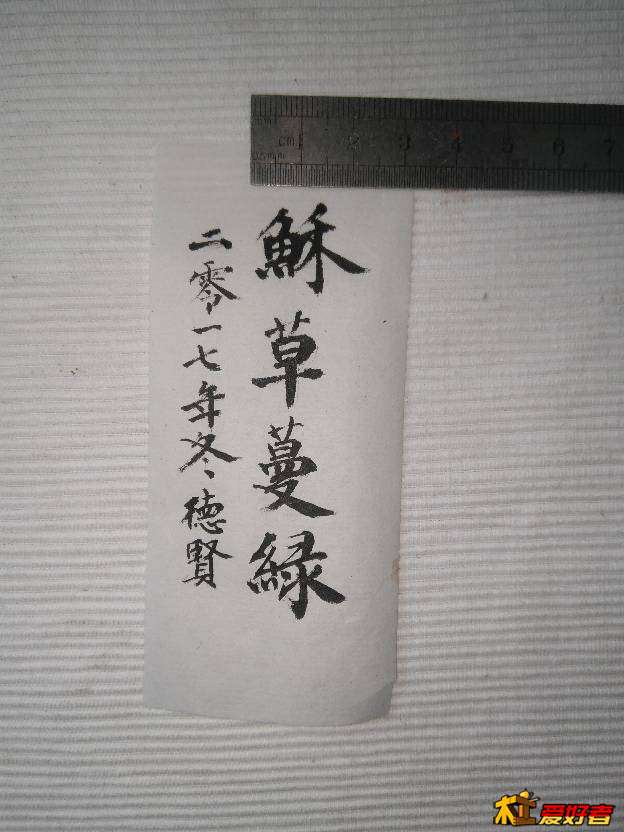 穌草蔓緑
二零一七年冬德賢
cm 1 2 3 4 5 6 7
0.5mm
杠爱好者